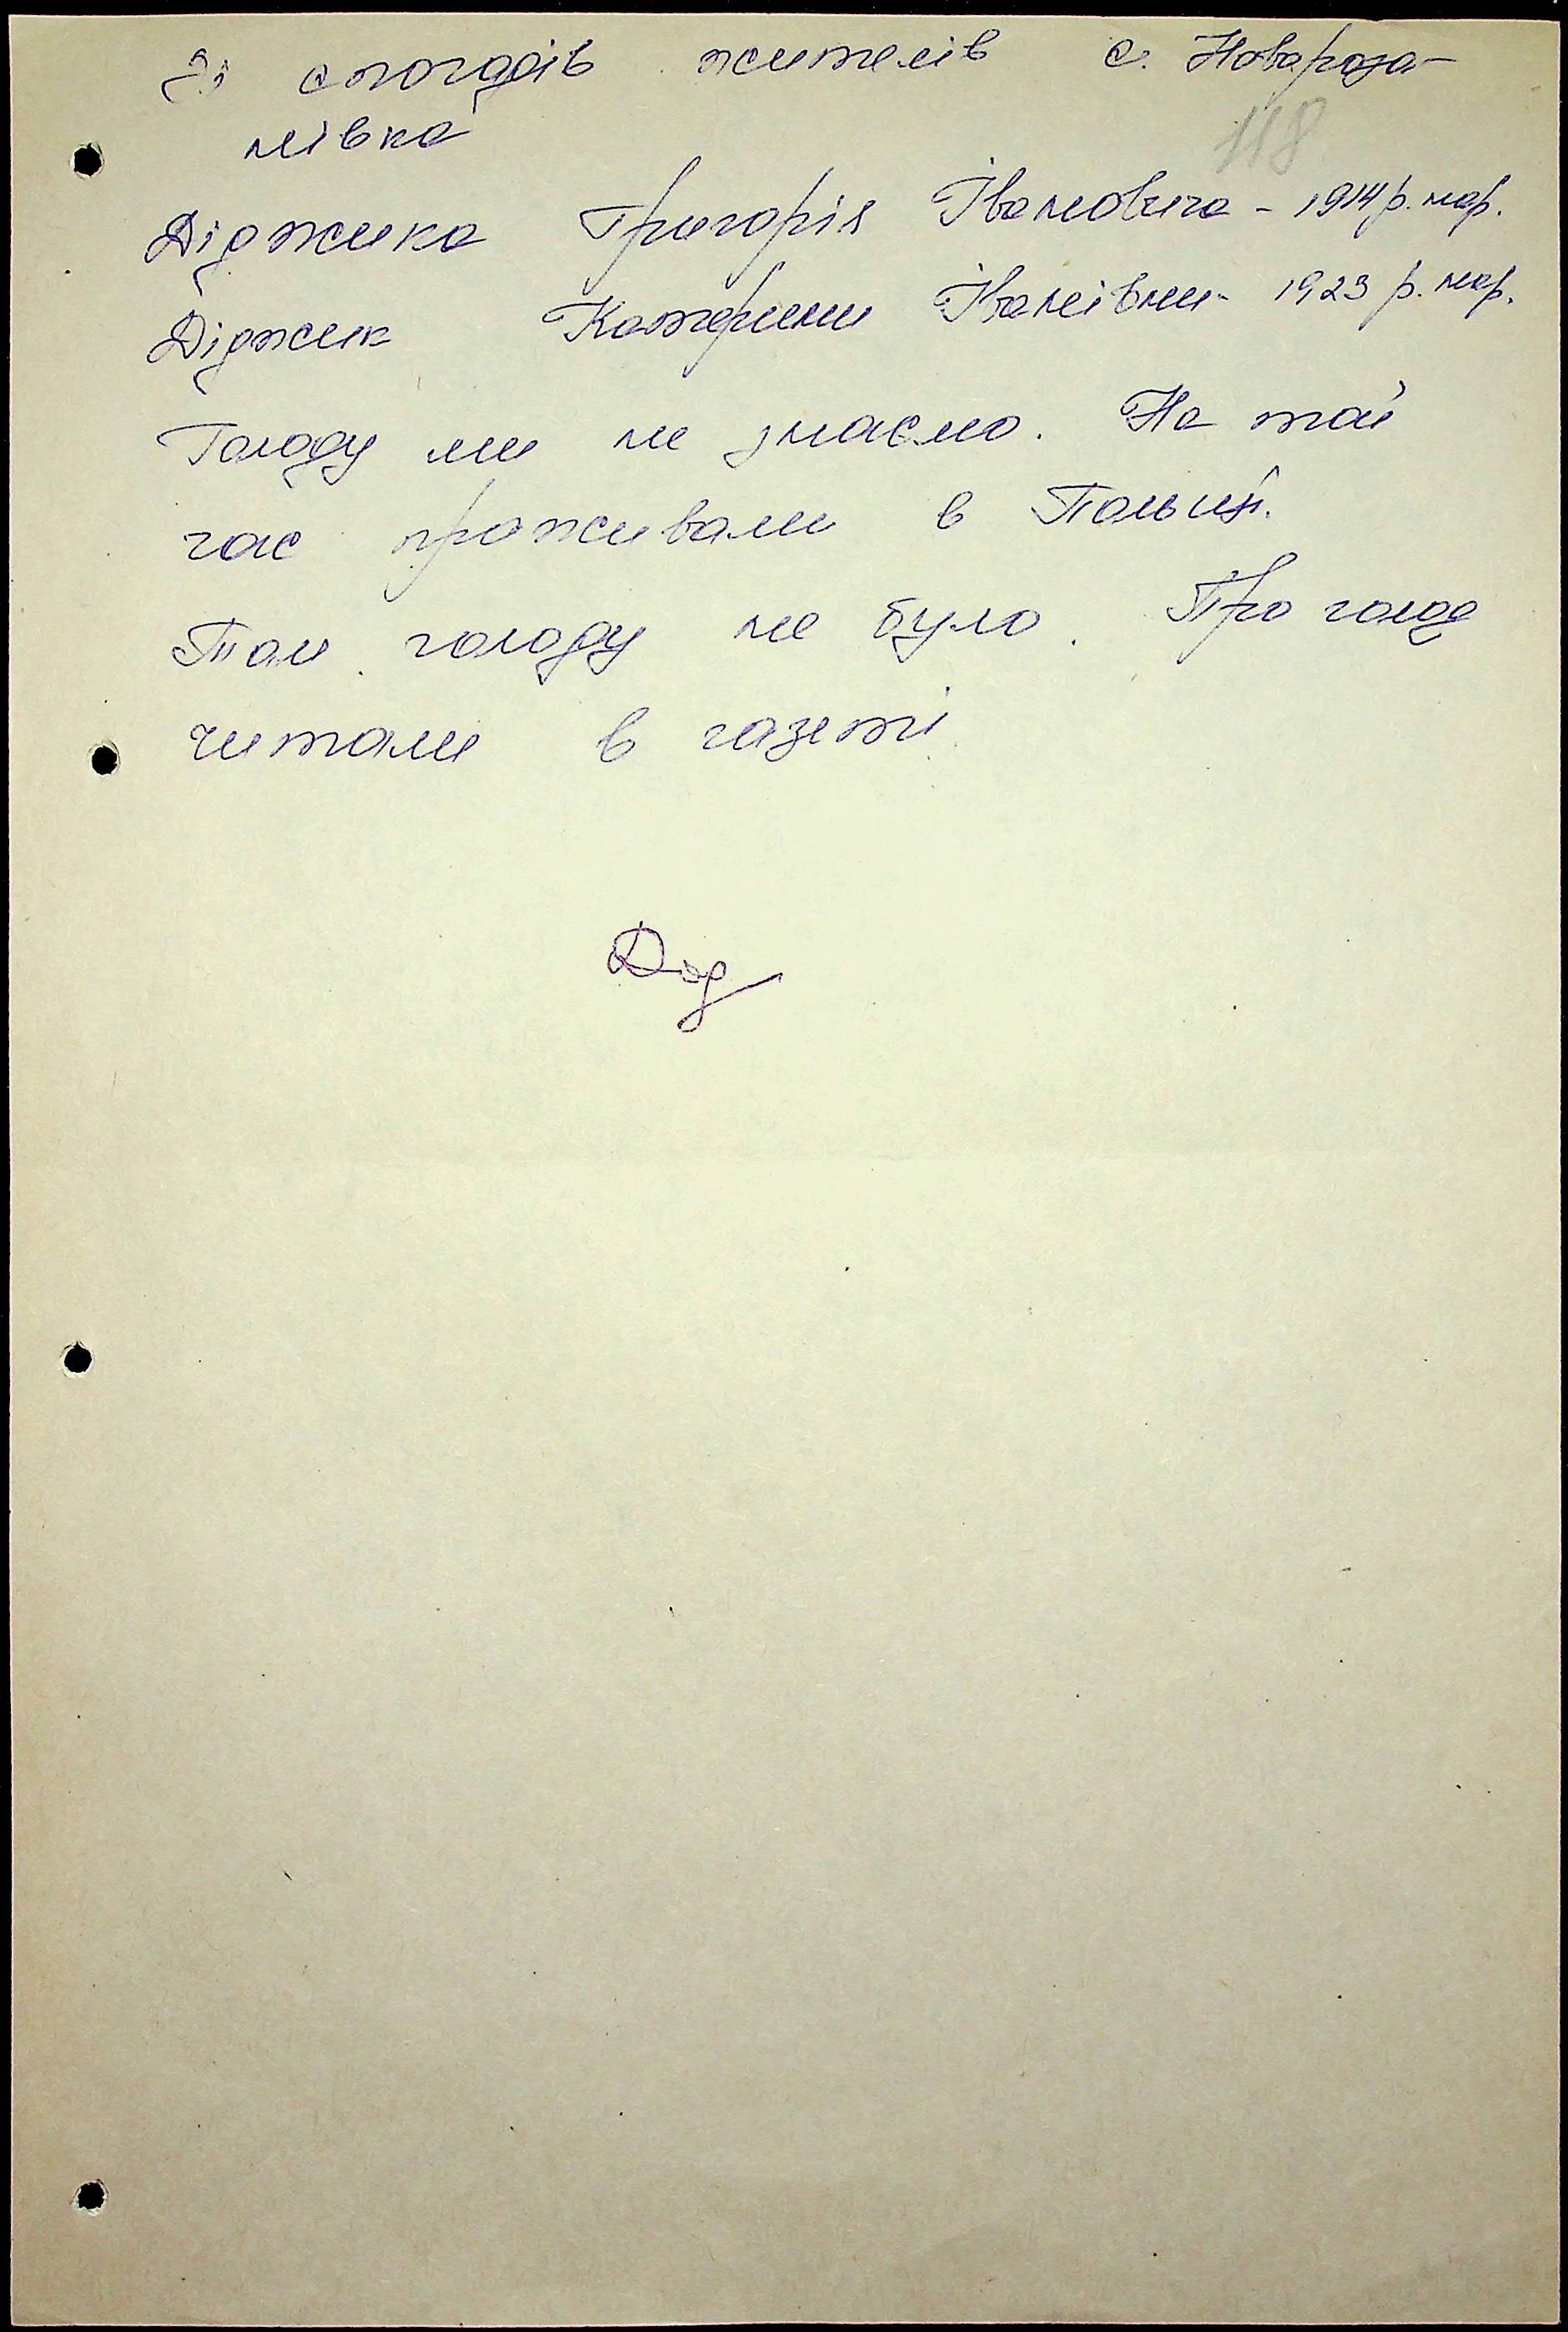 Зі спогадів жителів с. Новороза-
нівка
118
Діджика Григорія Івановича - 1914 р. нар.
Діджик Катерини Іванівни - 1923 р. нар.
Голоду ми не знаємо. На той
час проживали в Польщі.
Там голоду не було. Про голод
читали в газеті.